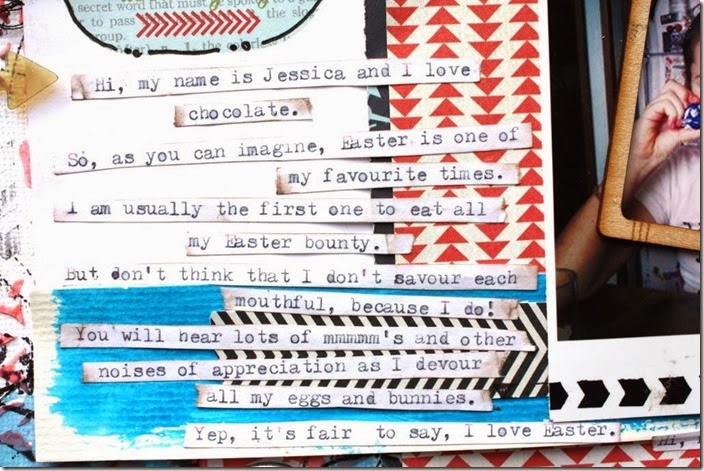 secret word that must
to pass
group.
Hi, my name is Jessica and I love
chocolate.
So, as you can imagine, Easter is one of
my favourite times.
I am usually the first one to eat all
my Easter bounty.
But don't think that I don't savour each
mouthful, because I do!
You will hear lots of mmmmm's and other
noises of appreciation as I devour
all my eggs and bunnies.
Yep, it's fair to say, I love Easter.
Hi,